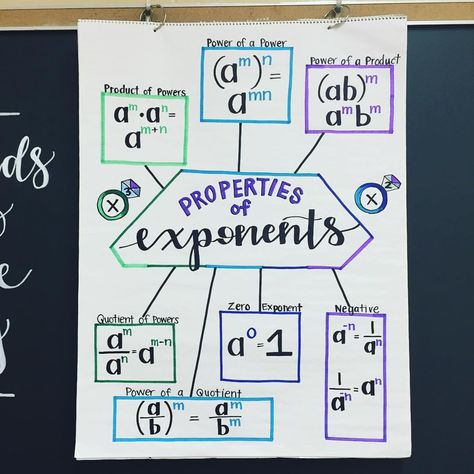 Power of a Power
(aᵐ)ⁿ =
aᵐⁿ
Power of a Product
(ab)ᵐ
aᵐbᵐ
Product of Powers
aᵐ·aⁿ=
aᵐ⁺ⁿ
PROPERTIES
of
exponents
x³
x²
Quotient of Powers
aᵐ/aⁿ = aᵐ⁻ⁿ
Zero Exponent
a⁰=1
Negative
a⁻ⁿ = 1/aⁿ
1/a⁻ⁿ = aⁿ
Power of a Quotient
(a/b)ᵐ = aᵐ/bᵐ